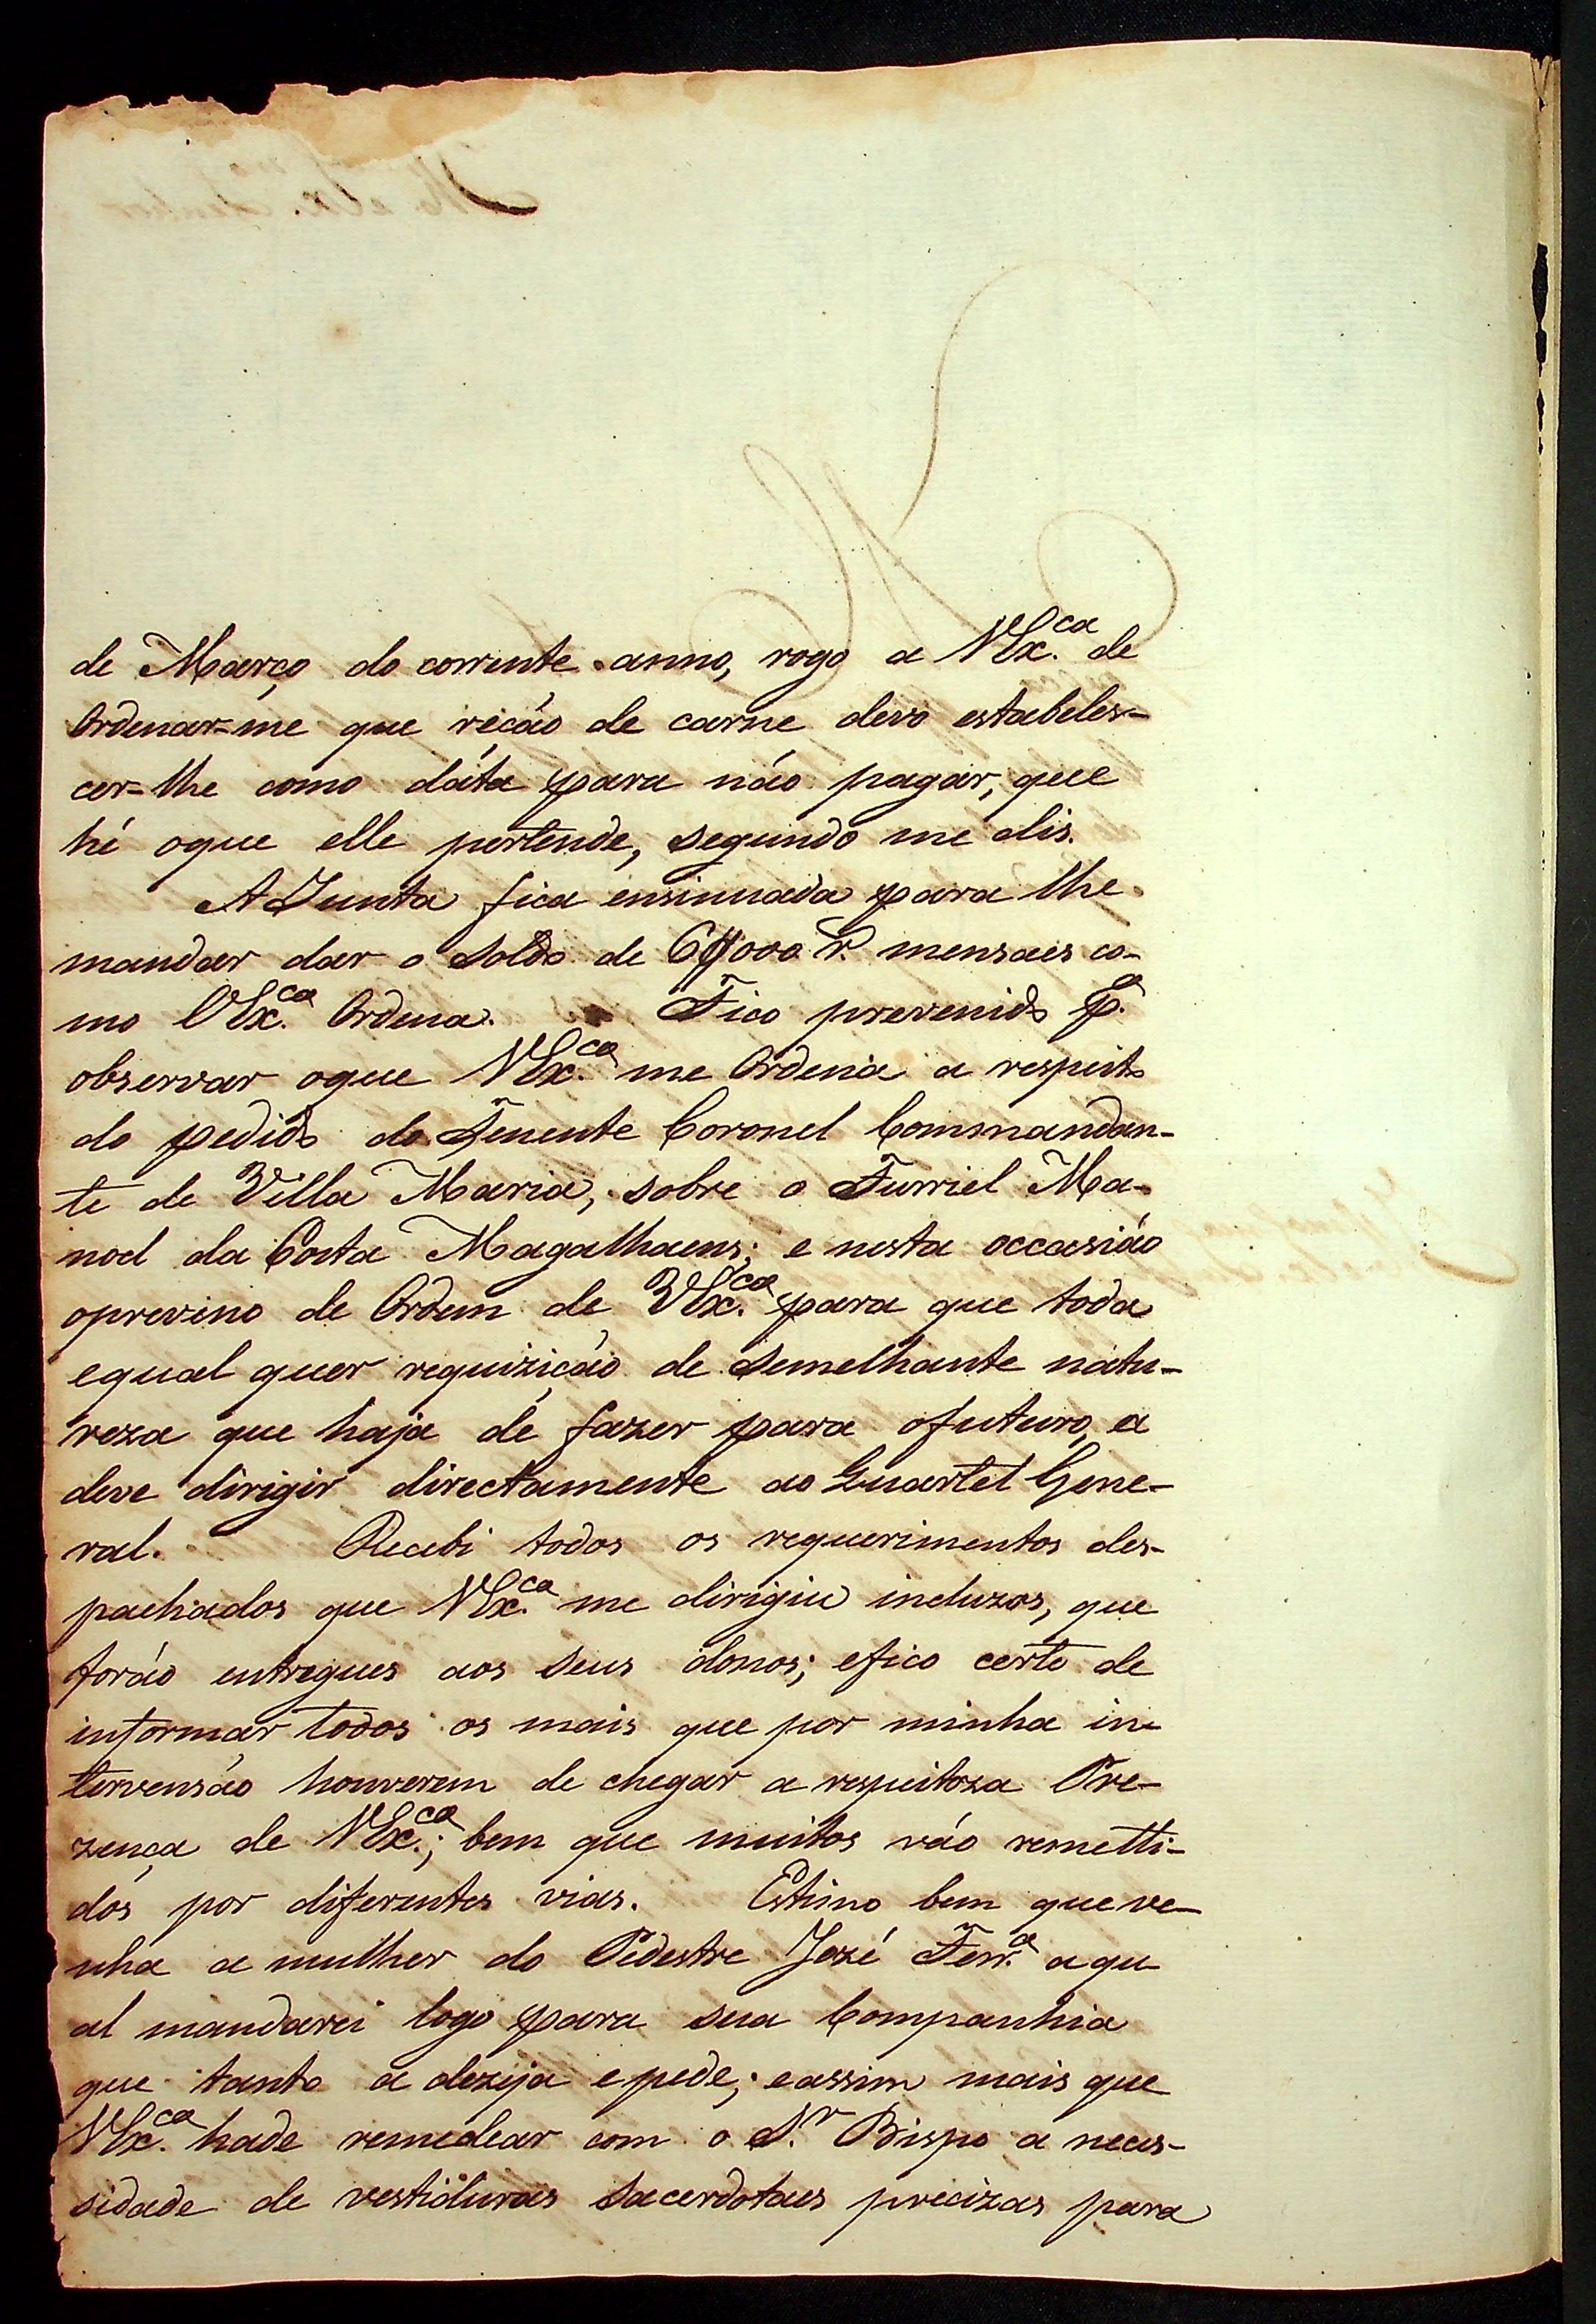 de Março do corrente anno, rogo a VEx.ca de
Ordenar=me que recáo de carne devo estabeles-
cer=lhe como dáta para náo pagar, que
hé oque elle pertende, segundo me dis.
A Junta fica ensinuada para lhe
mandar dar o soldo de 6$000 r.s mensaes co-
mo VEx.ca Ordena. Fico prevenido p.a
observar oque VEx.ca me Ordena a respeito
do pedido do Tenente Coronel Commandan-
te de Villa Maria, sobre o Furriel Ma-
noel da Costa Magalhaens; e nesta occasiáo
oprevino de Ordem de VEx.ca para que toda
equal quer requiziçáo de semelhante natu-
reza que haja de fazer para ofuturo, a
deve dirigir directamente ao Quartel Gene-
ral. Recebi todos os requerimentos des-
pachados que VEx.ca me dirigiu incluzos, que
foráo entregues aos seus donos; efico certo de
informar todos os mais que por minha in-
tervensáo houverem de chegar a respeitoza Pre-
zença de VEx.ca; bem que muitos váo remetti-
dos por diferentes vias. Estimo bem que ve-
nha a mulher do Pedestre Jozé Ferr.a aqu
al mandarei logo para sua Companhia
que tanto a dezeja epede; eassim mais que
VEx.ca hade remedear com o S.r Bispo a neces-
sidade de vestiduras sacerdotaes precizas para